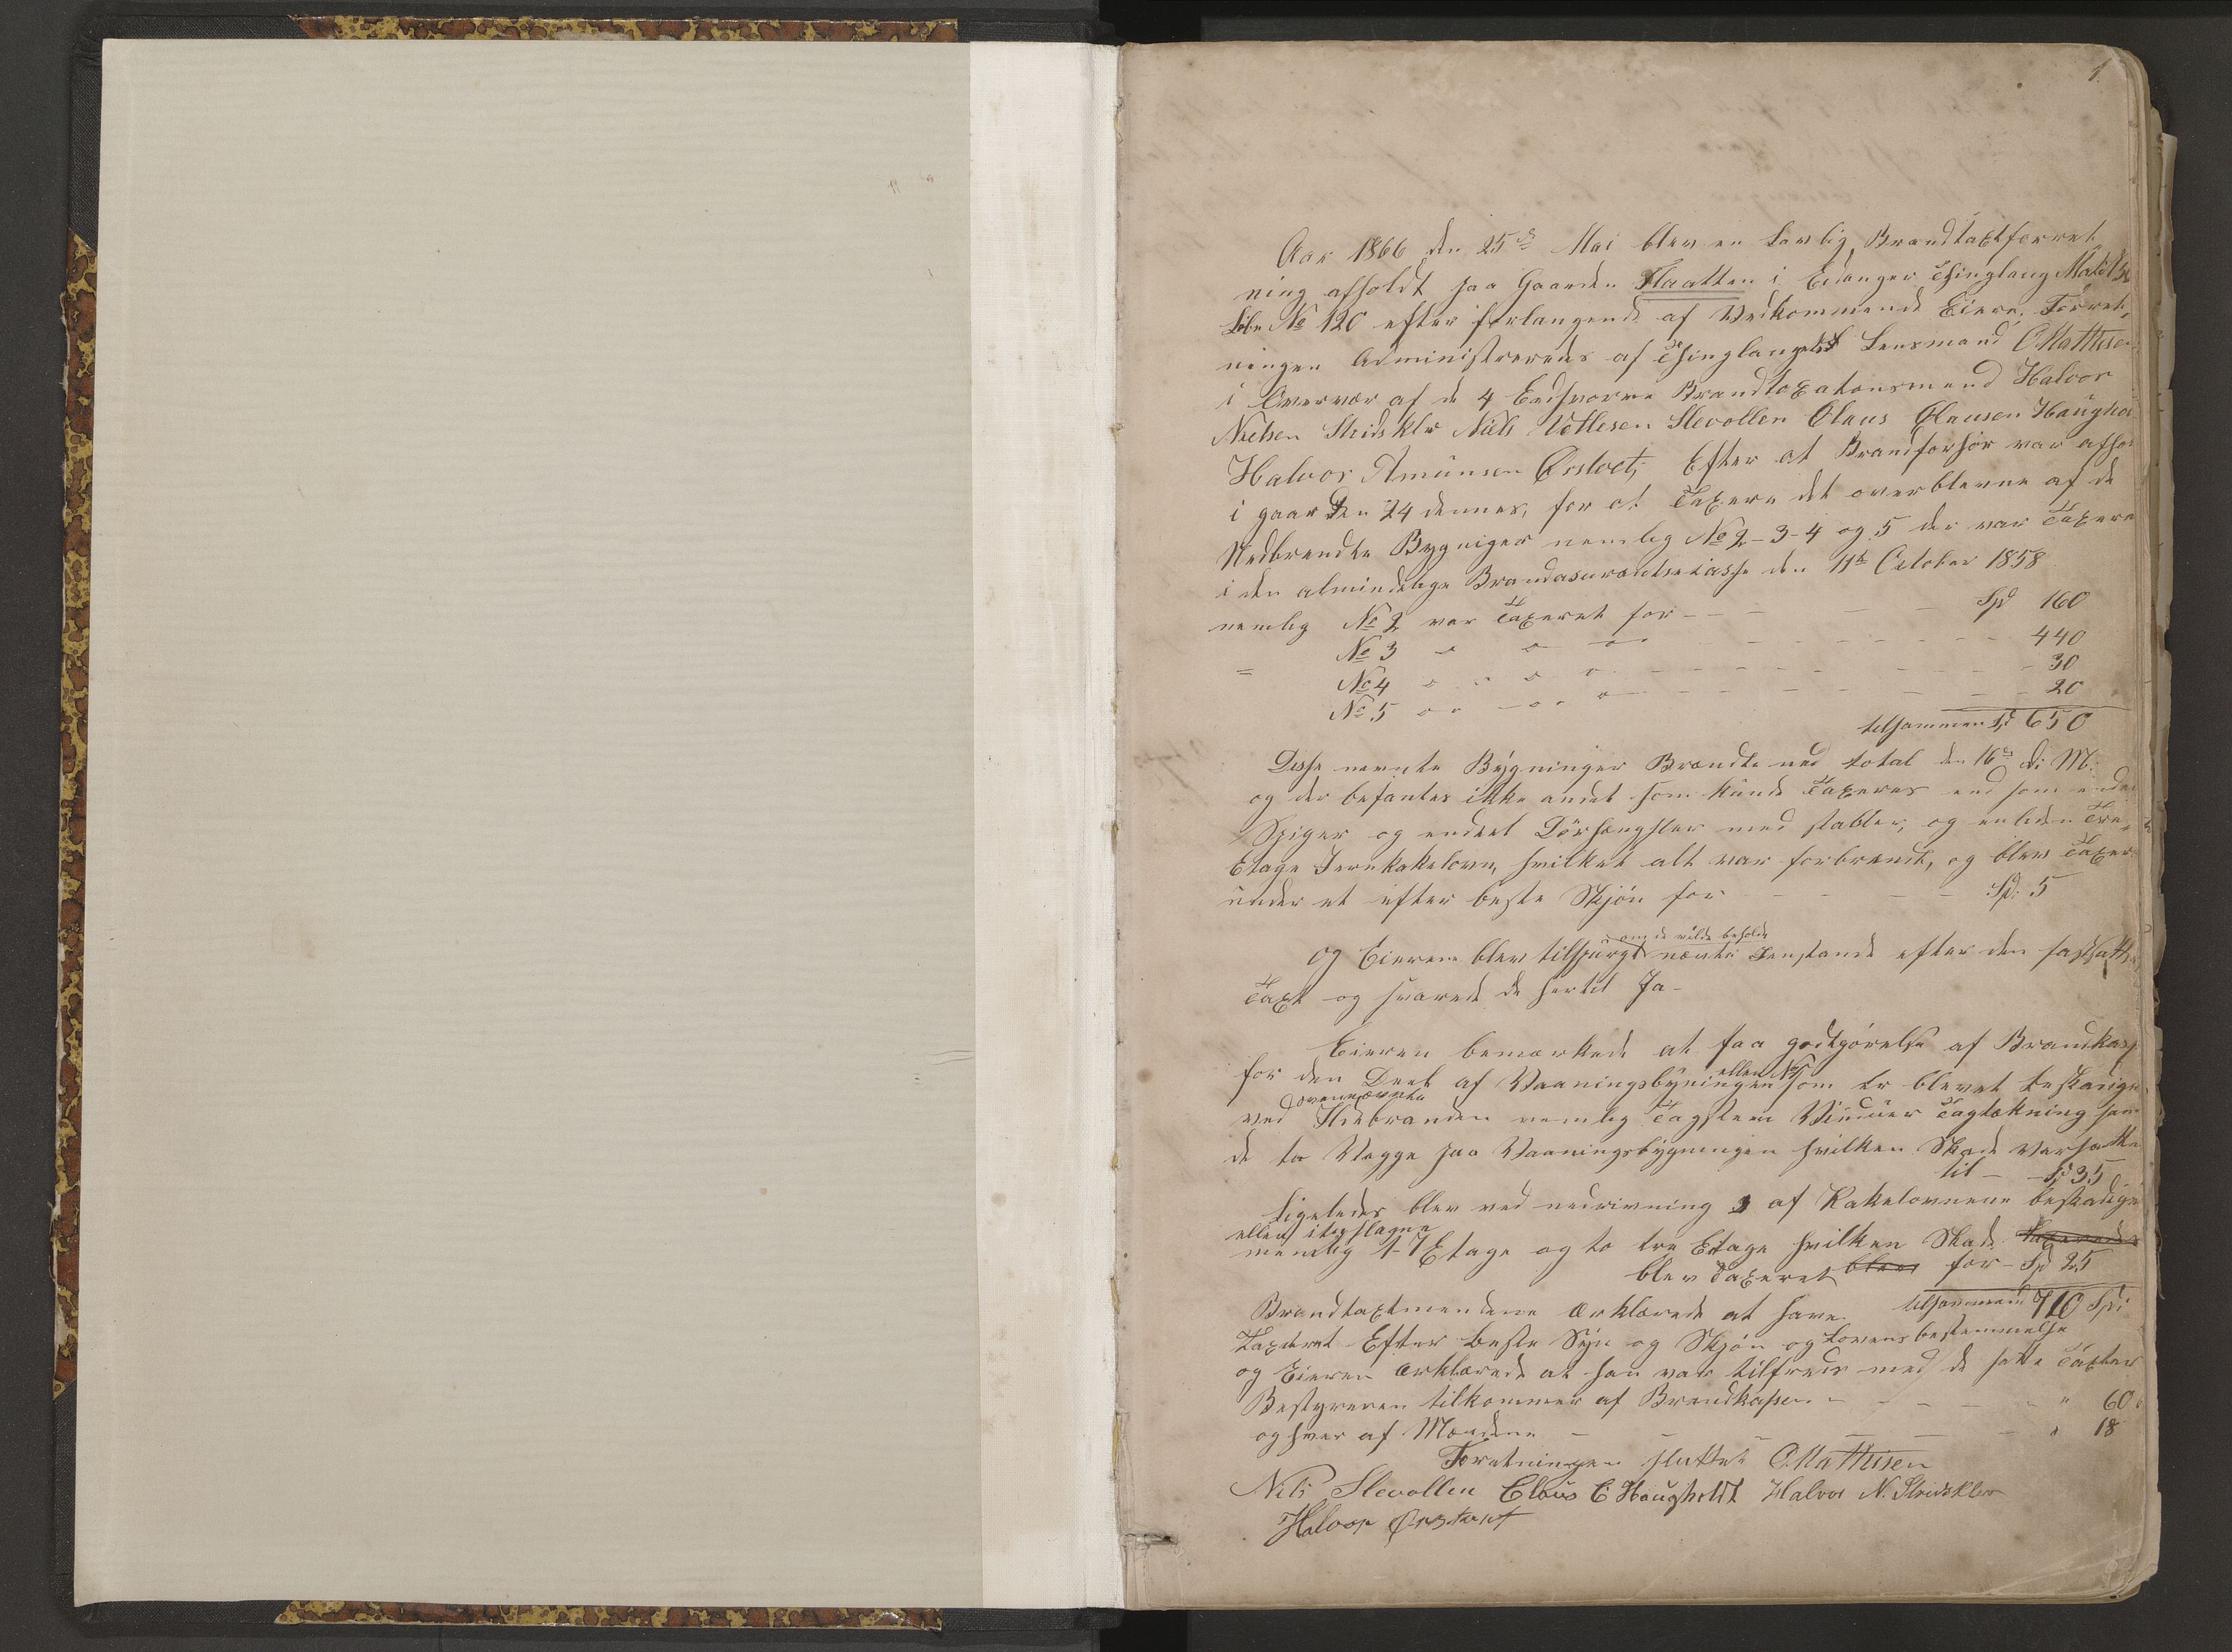 1.
Aar 1866 den 25de Mai blev en Lovlig Brandtaxtforret
ning afholdt paa Gaarden Flaatten i Eidanger Thinglaug Matl
Løbe No 120 efter forlangende af Vedkommende Eiere. Forret,
ningen Administreredes af Thinglaugets Lensmand O Mathisen
i Overvær af de 4 Eedsvorne Brandtaxationsmend Halvor
Nielsen Stridsklev Niels Vetlesen Slevollen Claus Clausen Haugho
Halvor Amunsen Ørstvet, Efter at Brandforhør var afho
i gaar den 24 dennes, for at Taxere det overblevne af de
Nedbrendte Bygniger nemlig No 2-3-4 og 5 der var Taxere
i den almindelige Brandasurantsecasse den 11te October 1858
nemlig No 2 var Taxeret for - - - - Spd 160
= No 3 " " " - - - - 440
No 4 " " " " - - - - 30
No 5 " " " " - - - - 20
tilsammen Spd 650
Disse nevnte Bygninger Brendte ned total den 16de di M:
og der befantes ikke andet som kunde Taxeres end som endel
Spiger og endeel Dørhængsler med stabler, og en liden Tre,
Etage Jernkakelovn, hvilket alt var forbrændt, og blev Taxer
under et efter beste Skjøn for - - - Spd. 5
om de vilde beholde
og Eieren blev tilspurgt nævnte Jenstande efter den fastsatte
Taxt og svarede de hertil Ja-
Eieren bemærkede at faa godtgørelse af Brandkass
eller No 1
for den Deel af Vaaningsbyningen som er blevet beskadige
ovennævnte
ved Ildebranden nemlig Tagsteen Vinduer Tagtekning sam
de to Vegge paa Vaaningsbygningen hvilken Skade Versatte
til - - Spd 35
ligeledes blev ved nedrivning 3 af Kakelovnene beskadige
eller itu slagne
nemlig 1-7 Etage og to tre Etage hvilken Skade taxeredes
blev Taxeret blev for - Spd 25
Brandtaxtmendene erklærede at have tilsammend 710 Spd
Taxeret Efter beste Syn og Skjøn og Lovens bestemmelse
og Eieren erklærede at han var tilfreds med de satte Taxter
Bestyreren tilkommer af Brandkassen - - - - " 60
og hver af Mændene - - - - " 18
Foretningen sluttet O. Mathisen
Nils Slevollen Claus C Haugholt Halvor N. Stridsklev
Halvor Ørstvet